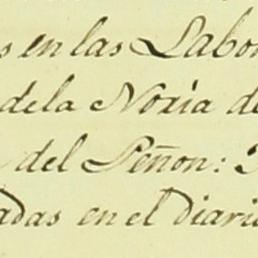 s en las Labor
de la Noria de
del Peñon:
adas en el diari